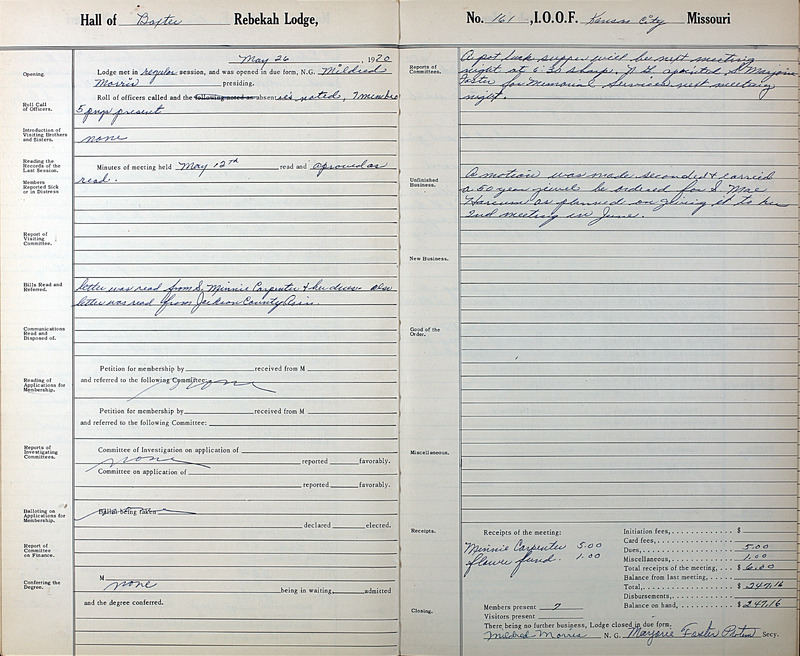 Hall of Baxter Rebekah Lodge,
May 26 1970
Opening.
Lodge met in regular session, and was opened in due form, N.G. Mildred
Morris presiding.
Roll Call
of Officers.
Roll of officers called and the following noted as absent as noted, 7 members
5 pngs present
Introduction of
Visiting Brothers
and Sisters.
none
Reading the
Records of the
Last Session.
Minutes of meeting held May 12th read and aproved as
read.
Members
Reported Sick
or in Distress
Report of
Visiting
Committee.
Bills Read and
Referred.
letter was read from S. Minnie Carpenter & her dues. also
letter was read from Jackson County Assn.
Communications
Read and
Disposed of.
Petition for membership by received from M
and referred to the following Committee:
none
Reading of
Applications for
Membership.
Petition for membership by received from M
and referred to the following Committee:
Reports of
Investigating
Committees.
Committee of Investigation on application of
none reported favorably.
Committee on application of
reported favorably.
Balloting on
Applications for
Membership.
Ballot being taken
declared elected.
Report of
Committee
on Finance.
Conferring the
Degree.
M
none being in waiting, admitted
and the degree conferred.
No. 161, I.O.O.F. Kansas City Missouri
Reports of
Committees.
A pot luck supper will be next meeting
night at 6:30 sharp. N.G. apointed S. Marjorie
Foster for Memorial Services next meeting
night.
Unfinished
Business.
A motion was made seconded & carried
a 50 year jewel be ordered for S. Mae
as planned on giving it to her
2nd meeting in June.
New Business.
Good of the
Order.
Miscellaneous.
Receipts.
Receipts of the meeting:
Minnie Carpenter 5.00
flower fund. 1.00
Initiation fees, $
Card fees,
Dues, 5.00
Miscellaneous, 1.00
Total receipts of the meeting, $ 6.00
Balance from last meeting,
Total, $ 247.16
Disbursements,
Balance on hand, $ 247.16
Members present 7
Visitors present
Closing.
There being no further business, Lodge closed in due form.
Mildred Morris N. G. Marjorie Foster Protem Secy.